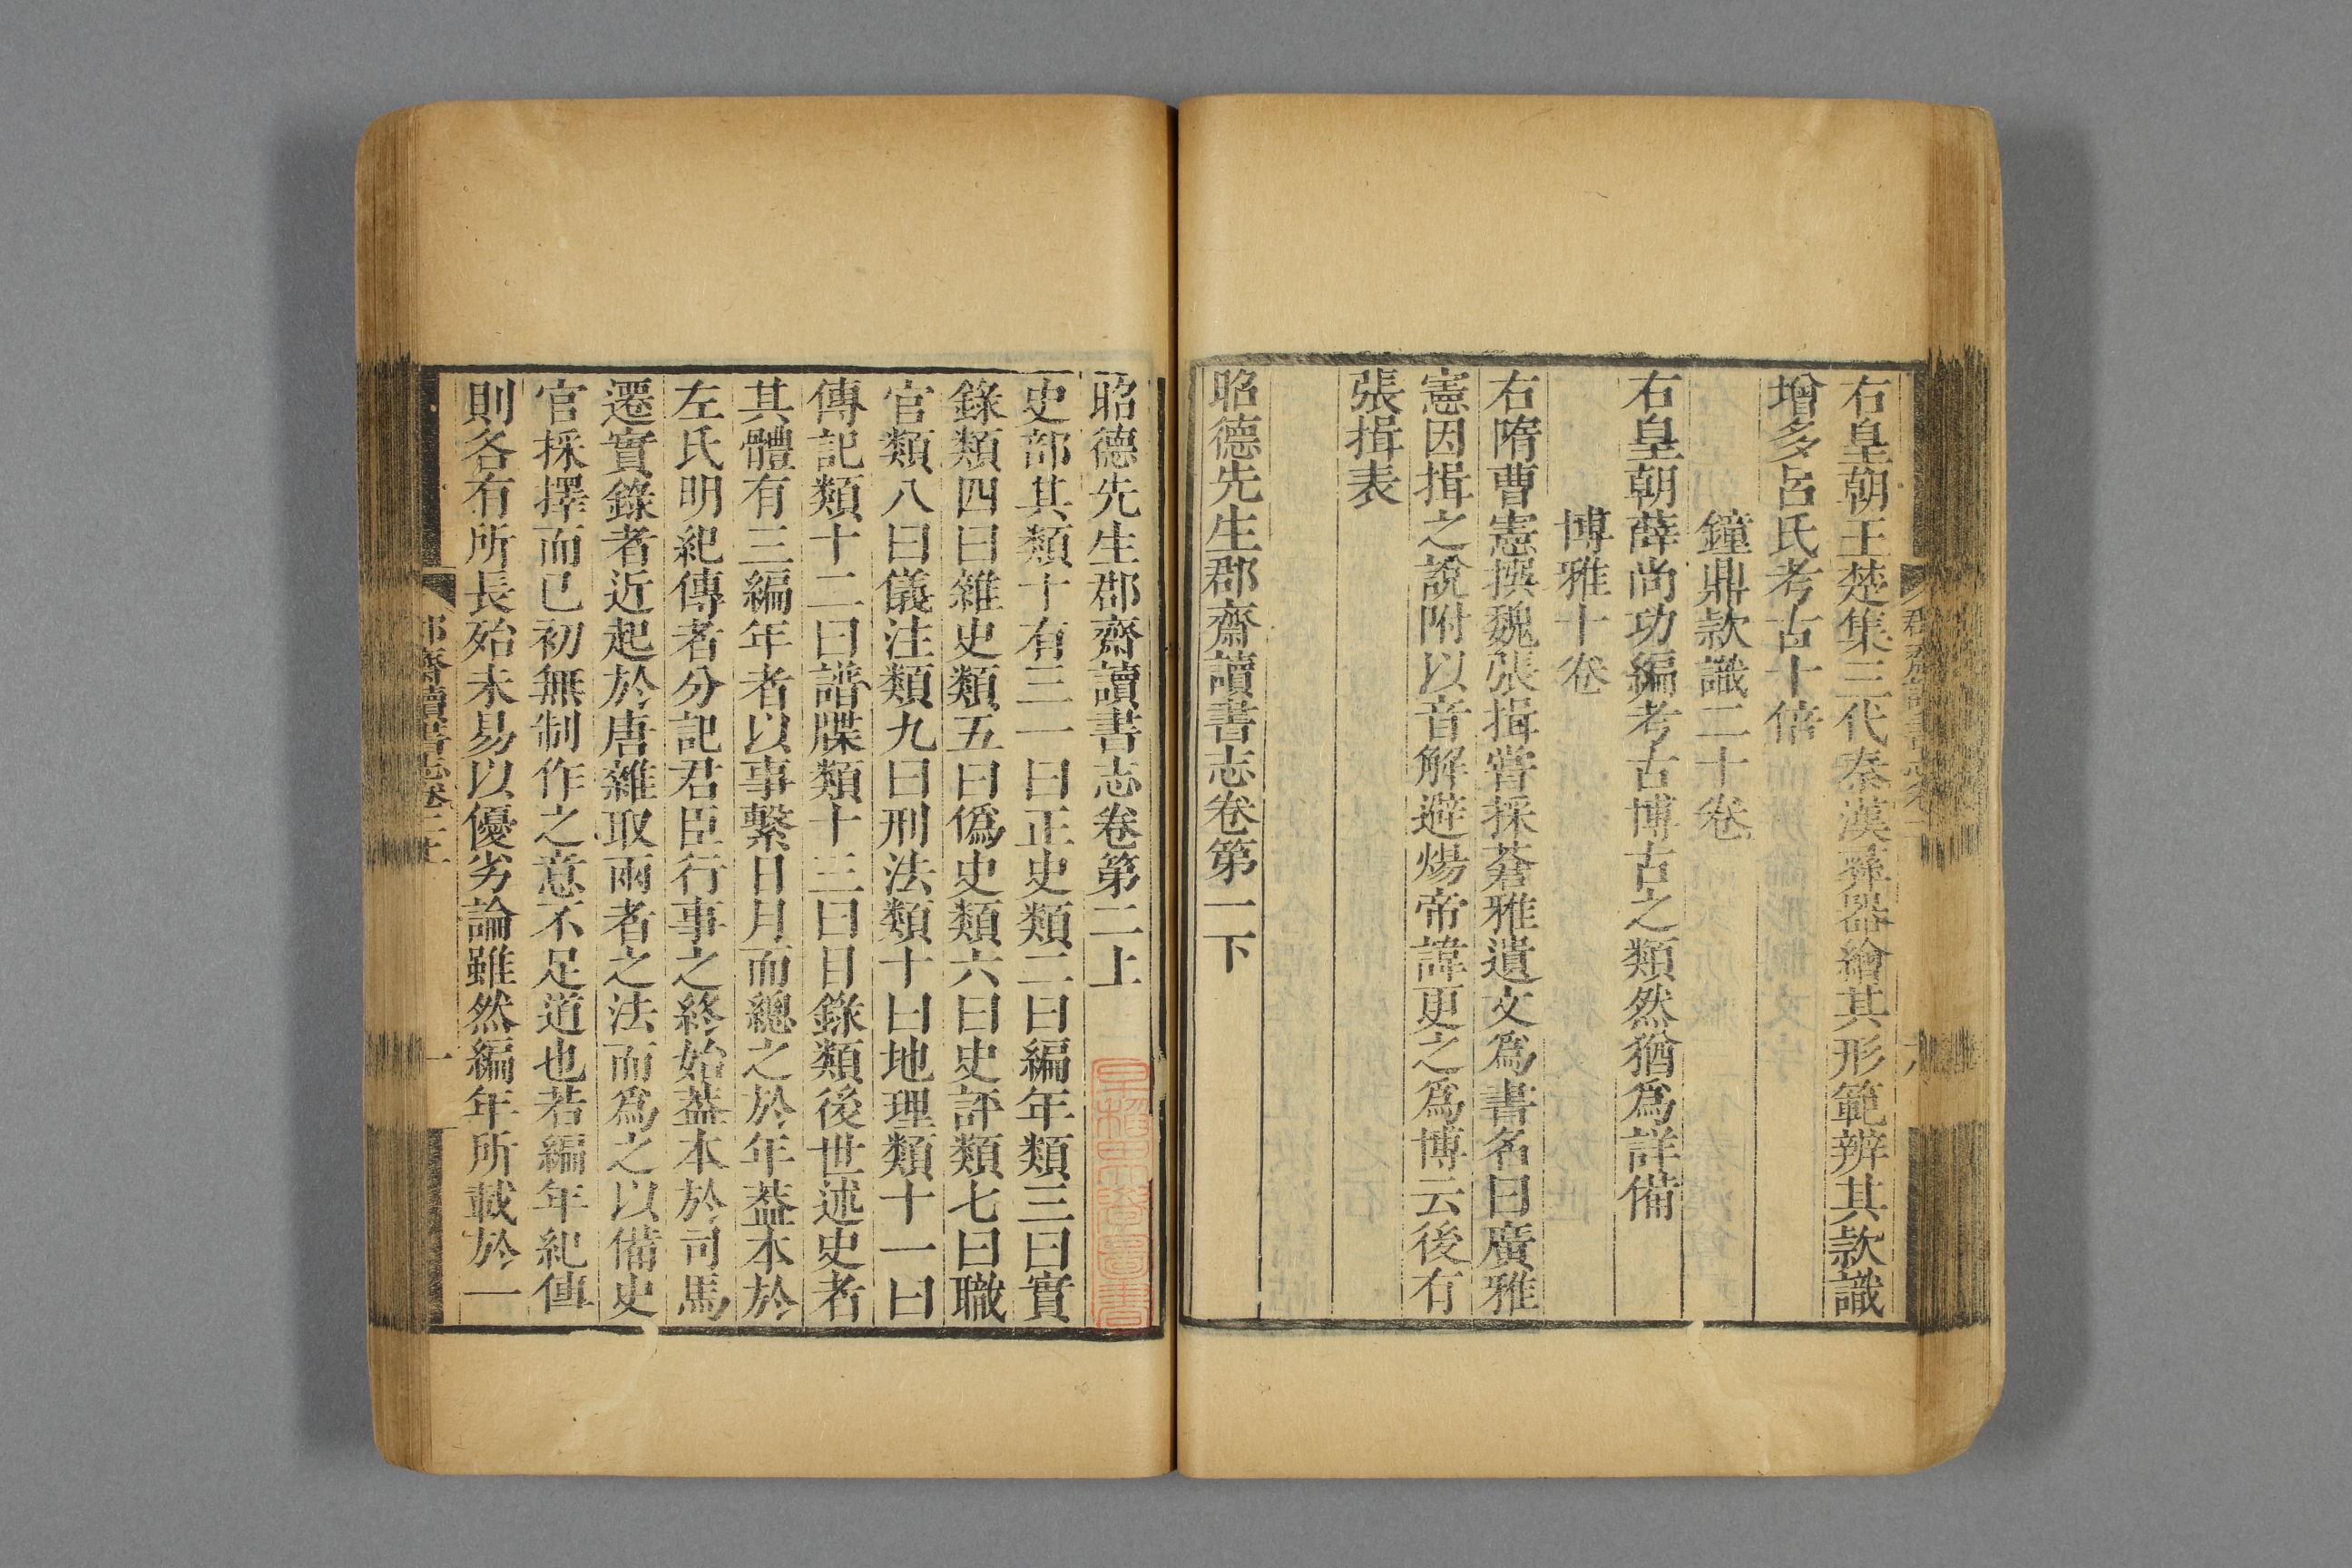 右皇朝王楚集三代秦漢彝器繪其形範辨其款識
增多呂氏考古十倍
鐘鼎款識二十卷
右皇朝薛尚功編考古博古之類然猶爲詳備
博雅十卷
右隋曹憲撰魏張揖嘗採蒼雅遺文爲書名曰廣雅
憲因揖之說附以音解避煬帝諱更之爲博云後有
張揖表
昭德先生郡齋讀書志卷第一下
昭德先生郡齋讀書志卷第二上
史部其類十有三一曰正史類二曰編年類三曰實
錄類四曰雜史類五曰僞史類六曰史評類七曰職
官類八曰儀注類九曰刑法類十曰地理類十一曰
傳記類十二曰譜牒類十三曰目錄類後世述史者
其體有三編年者以事繫日月而總之於年葢本於
左氏明紀傳者分記君臣行事之終始葢本於司馬
遷實錄者近起於唐雜取兩者之法而爲之以備史
官採擇而已初無制作之意不足道也若編年紀傳
則各有所長殆未易以優劣論雖然編年所載於一
郡齋讀書志卷二上
一